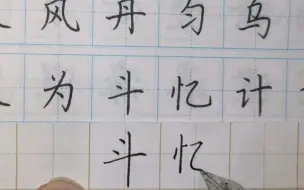 风丹匀乌
为斗忆计
斗忆